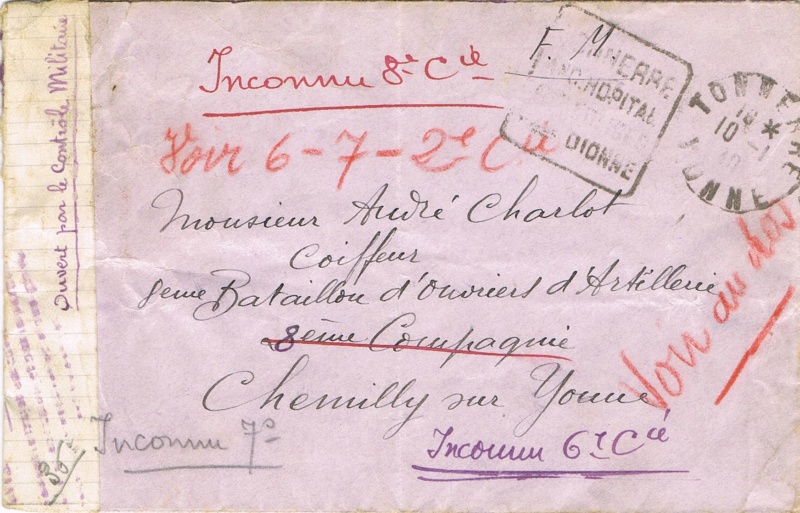 Ouvert par le Contrôle Militaire
F. M
Inconnu 8e Cie
TONNERRE
HOPITAL
DIONNE
TONNERRE
18
10 - 1
YONNE
Voir 6-7-2e Cie
Monsieur André Charlot
Coiffeur
8eme Bataillon d'Ouvriers d'Artillerie
8ème Compagnie
Chemilly sur Yonne
Voir au dos
Inconnu 7e
Inconnu 6e Cie